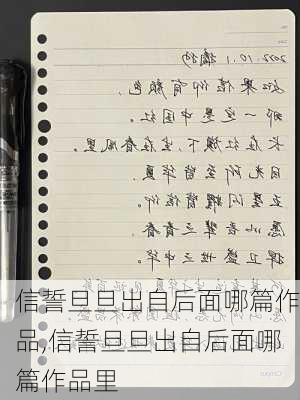 2022.10.1 摘抄
如果信仰有颜色,
一定是中国红。
长在红旗下,生在春风里。
目光所至皆华夏,
五星闪耀皆信仰。
愿以吾辈之青春,
捍卫盛世中华
信誓旦旦出自后面哪篇作
品,信誓旦旦出自后面哪
篇作品里